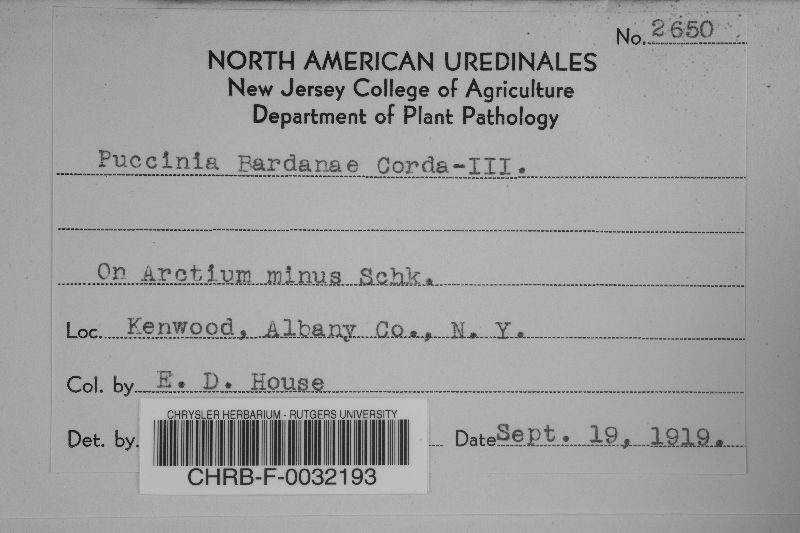 No. 2650
NORTH AMERICAN UREDINALES
New Jersey College of Agriculture
Department of Plant Pathology
Puccinia Bardanae Corda-III.
On Arctium minus Schk.
Loc. Kenwood, Albany Co., N. Y.
Col. by E. D. House
Det. by. Date Sept. 19, 1919.
CHRYSLER HERBARIUM - RUTGERS UNIVERSITY
CHRB-F-0032193